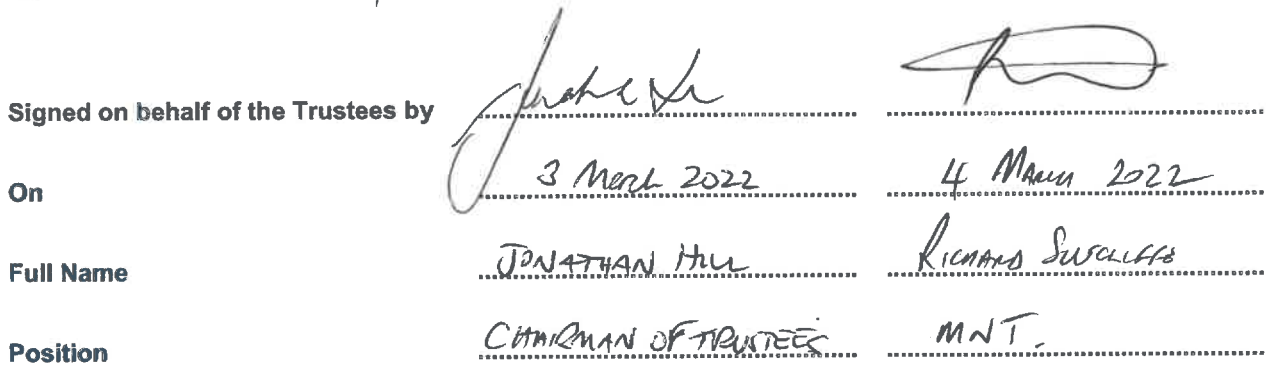 Signed on behalf of the Trustees by
On 3 March 2022 4 March 2022
Full Name JONATHAN HILL RICHARD SUTCLIFFE
Position CHAIRMAN OF TRUSTEES MNT.